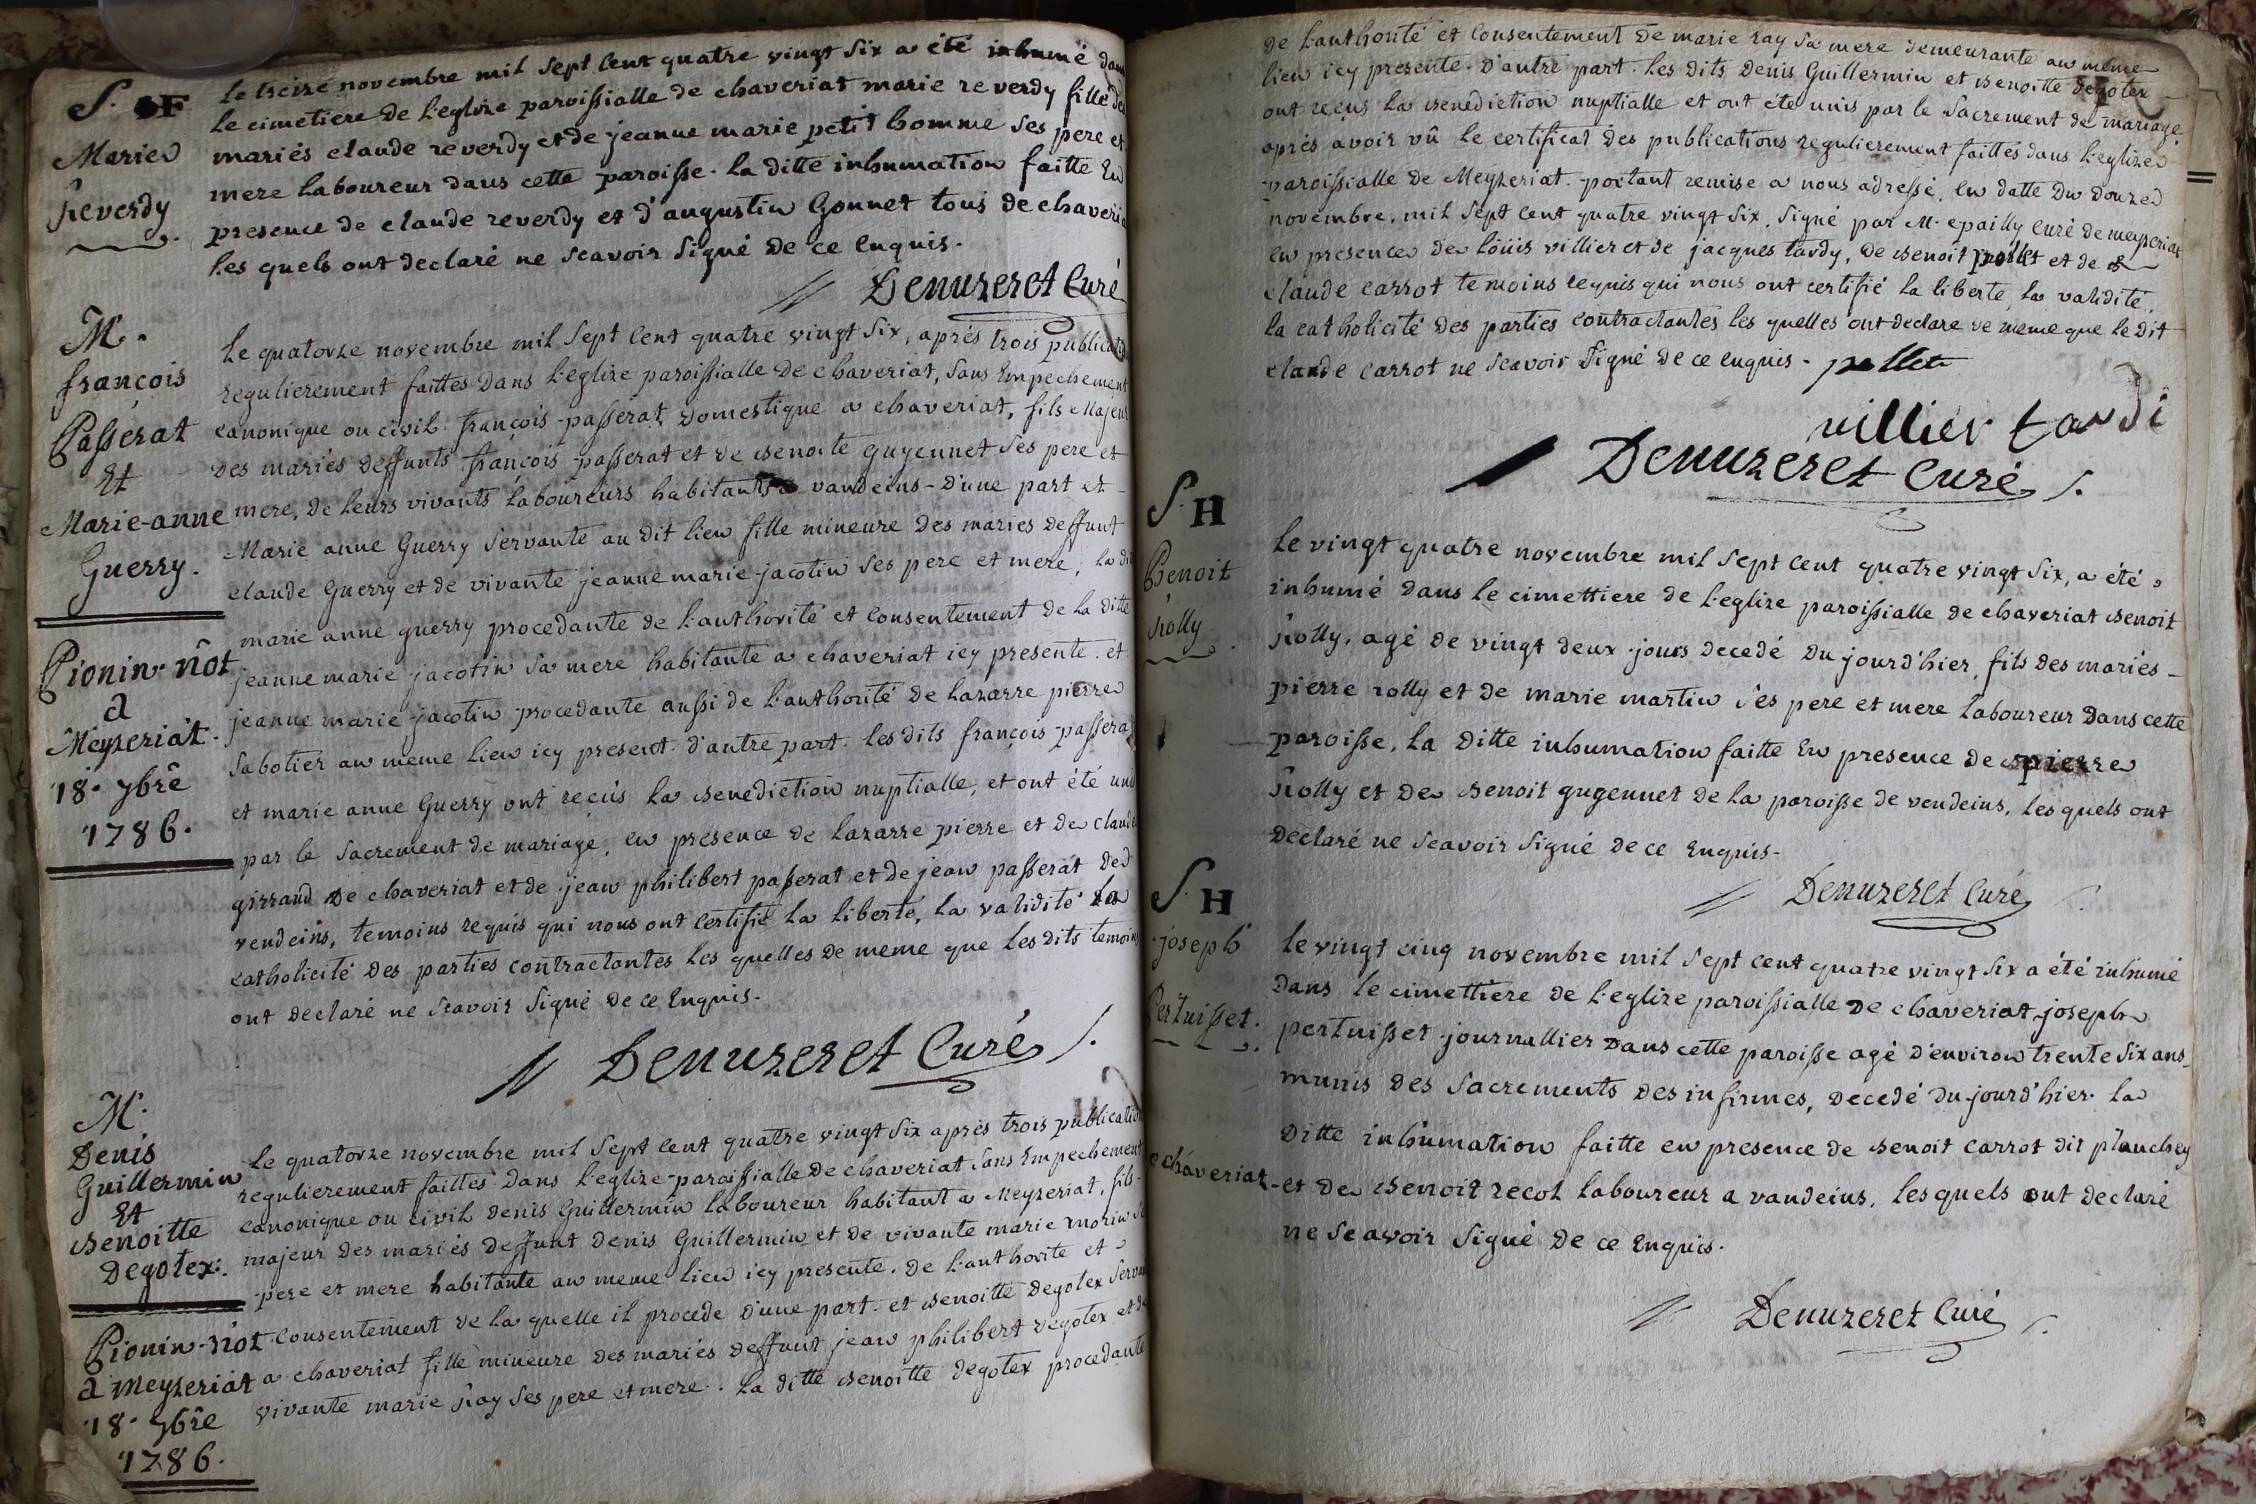 S. F
Marie
Reverdy
le treize novembre mil sept cent quatre vingt six a été inhumé dans
le cimetiere de l'eglize paroissialle de chaveriat marie reverdy fille des
mariés claude reverdy et de jeanne marie petit homme ses pere et
mere laboureur dans cette paroisse. la ditte inhumation faitte En
presence de claude reverdy et d'augustin Gonnet tous de chaveria
les quels ont declaré ne scavoir signé de ce Enquis.
Denuzeret Curé
M.
françois
Passerat
Et
Marie-anne
Guerry.
Pionin nôt
a
Meyzeriat.
18. 9bre
1786.
le quatorze novembre mil sept cent quatre vingt six, aprés trois publicati
regulierement faittes dans l'eglize paroissialle de chaveriat, sans Empechement
canonique ou civil. françois passerat, domestique a chaveriat, fils Majeur
des mariés deffunts françois passerat et de Benoite Guyennet ses pere et
mere, de leurs vivants laboureurs habitants a vandeins - d'une part et -
Marie anne Guerry servante au dit lieu fille mineure des maries deffunt
claude Guerry et de vivante jeanne marie jacotin ses pere et mere, la di
marie anne guerry procedante de l'authorité et consentement de la ditte
jeanne marie jacotin sa mere habitante a chaveriat icy presente. et
jeanne marie jacotin procedante aussi de l'authorité de lazarre pierre
sabotier au meme lieu icy present. d'autre part. les dits françois passera
et marie anne Guerry ont reçus la Benediction nuptialle, et ont été unis
par le sacrement de mariage, en présence de lazarre pierre et de claude
girraud de chaveriat et de jean philibert passerat et de jean passerat de
vendeins, temoins requis qui nous ont certifié la liberté, la validité la
catholicité des parties contractantes les quelles de meme que les dits temoins
ont declaré ne scavoir signé de ce Enquis.
Denuzeret Curé
M.
Denis
Guillermin
Et
Benoitte
Degotex.
Pionin nôt
a Meyzeriat
18. 9bre
1786.
le quatorze novembre mil sept cent quatre vingt six aprés trois publicatio
regulierement faittes dans l'eglize paroissialle de chaveriat sans Empechement
canonique ou civil denis Guillermin laboureur habitant a Meyzeriat, fils
majeur des mariés deffunt denis Guillermin et de vivante marie morin
pere et mere habitante au meme lieu icy presente. de l'authorite et
consentement de la quelle il procede d'une part. et Benoitte degotex serva
a chaveriat fille mineure des mariés deffunt jean philibert degotex et de
vivante marie Ray ses pere et mere. la ditte Benoitte degotex procedante
de l'authorité et Consentement de marie Ray sa mere demeurante au meme
lieu icy presente. d'autre part. les dits denis Guillermin et Benoitte degotex
ont reçus la Benediction nuptialle et ont été unis par le sacrement de mariage
aprés avoir vû le certificat des publications regulierement faittes dans l'eglize
paroissialle de Meyzeriat. portant remise a nous adressé, en datte du douze
novembre, mil sept cent quatre vingt six, signé par M. epailly curé de meyzeriat
en presence de loüis villier et de jacques tardy, de Benoit pollet et de
claude carrot temoins requis qui nous ont certifié la liberté, la validité,
la catholicité des parties contractantes, les quelles ont declare de meme que le dit
claude carrot ne scavoir signé de ce enquis. pollet
villier tardi
Denuzeret Curé
S. H
Benoit
Rolly
le vingt quatre novembre mil sept cent quatre vingt six, a été
inhumé dans le cimettiere de l'eglize paroissialle de chaveriat Benoit
Rolly, agé de vingt deux jours decedé du jourd'hier, fils des mariés -
pierre rolly et de marie martin ses pere et mere laboureur dans cette
paroisse, la ditte inhumation faitte En presence de pierre
Rolly et de Benoit gugennet de la paroisse de vendeins, les quels ont
declaré ne scavoir signé de ce Enquis.
Denuzeret Curé
S. H
joseph
Pertuisset.
le vingt cinq novembre mil sept cent quatre vingt six a été inhumé
dans le cimettiere de l'eglize paroissialle de chaveriat joseph
pertuisset journallier dans cette paroisse agé d'environ trente six ans
munis des sacrements des infirmes, decedé du jourd'hier. la
ditte inhumation faitte en presence de Benoit carrot dit planchey
de chaveriat - et de Benoit recol laboureur a vandeins, les quels ont declaré
ne scavoir signé de ce Enquis.
Denuzeret Curé